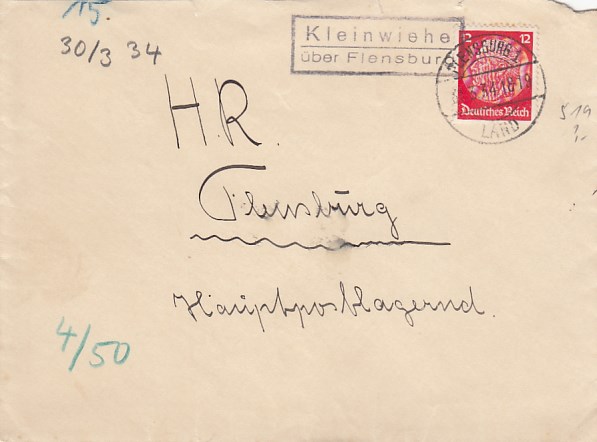 15.
30/3 34
Kleinwiehe
über Flensburg
12 12
Deutsches Reich
FLENSBURG 1
34.18
LAND
519
H.R.
Flensburg
Hauptpostlagernd.
4/50